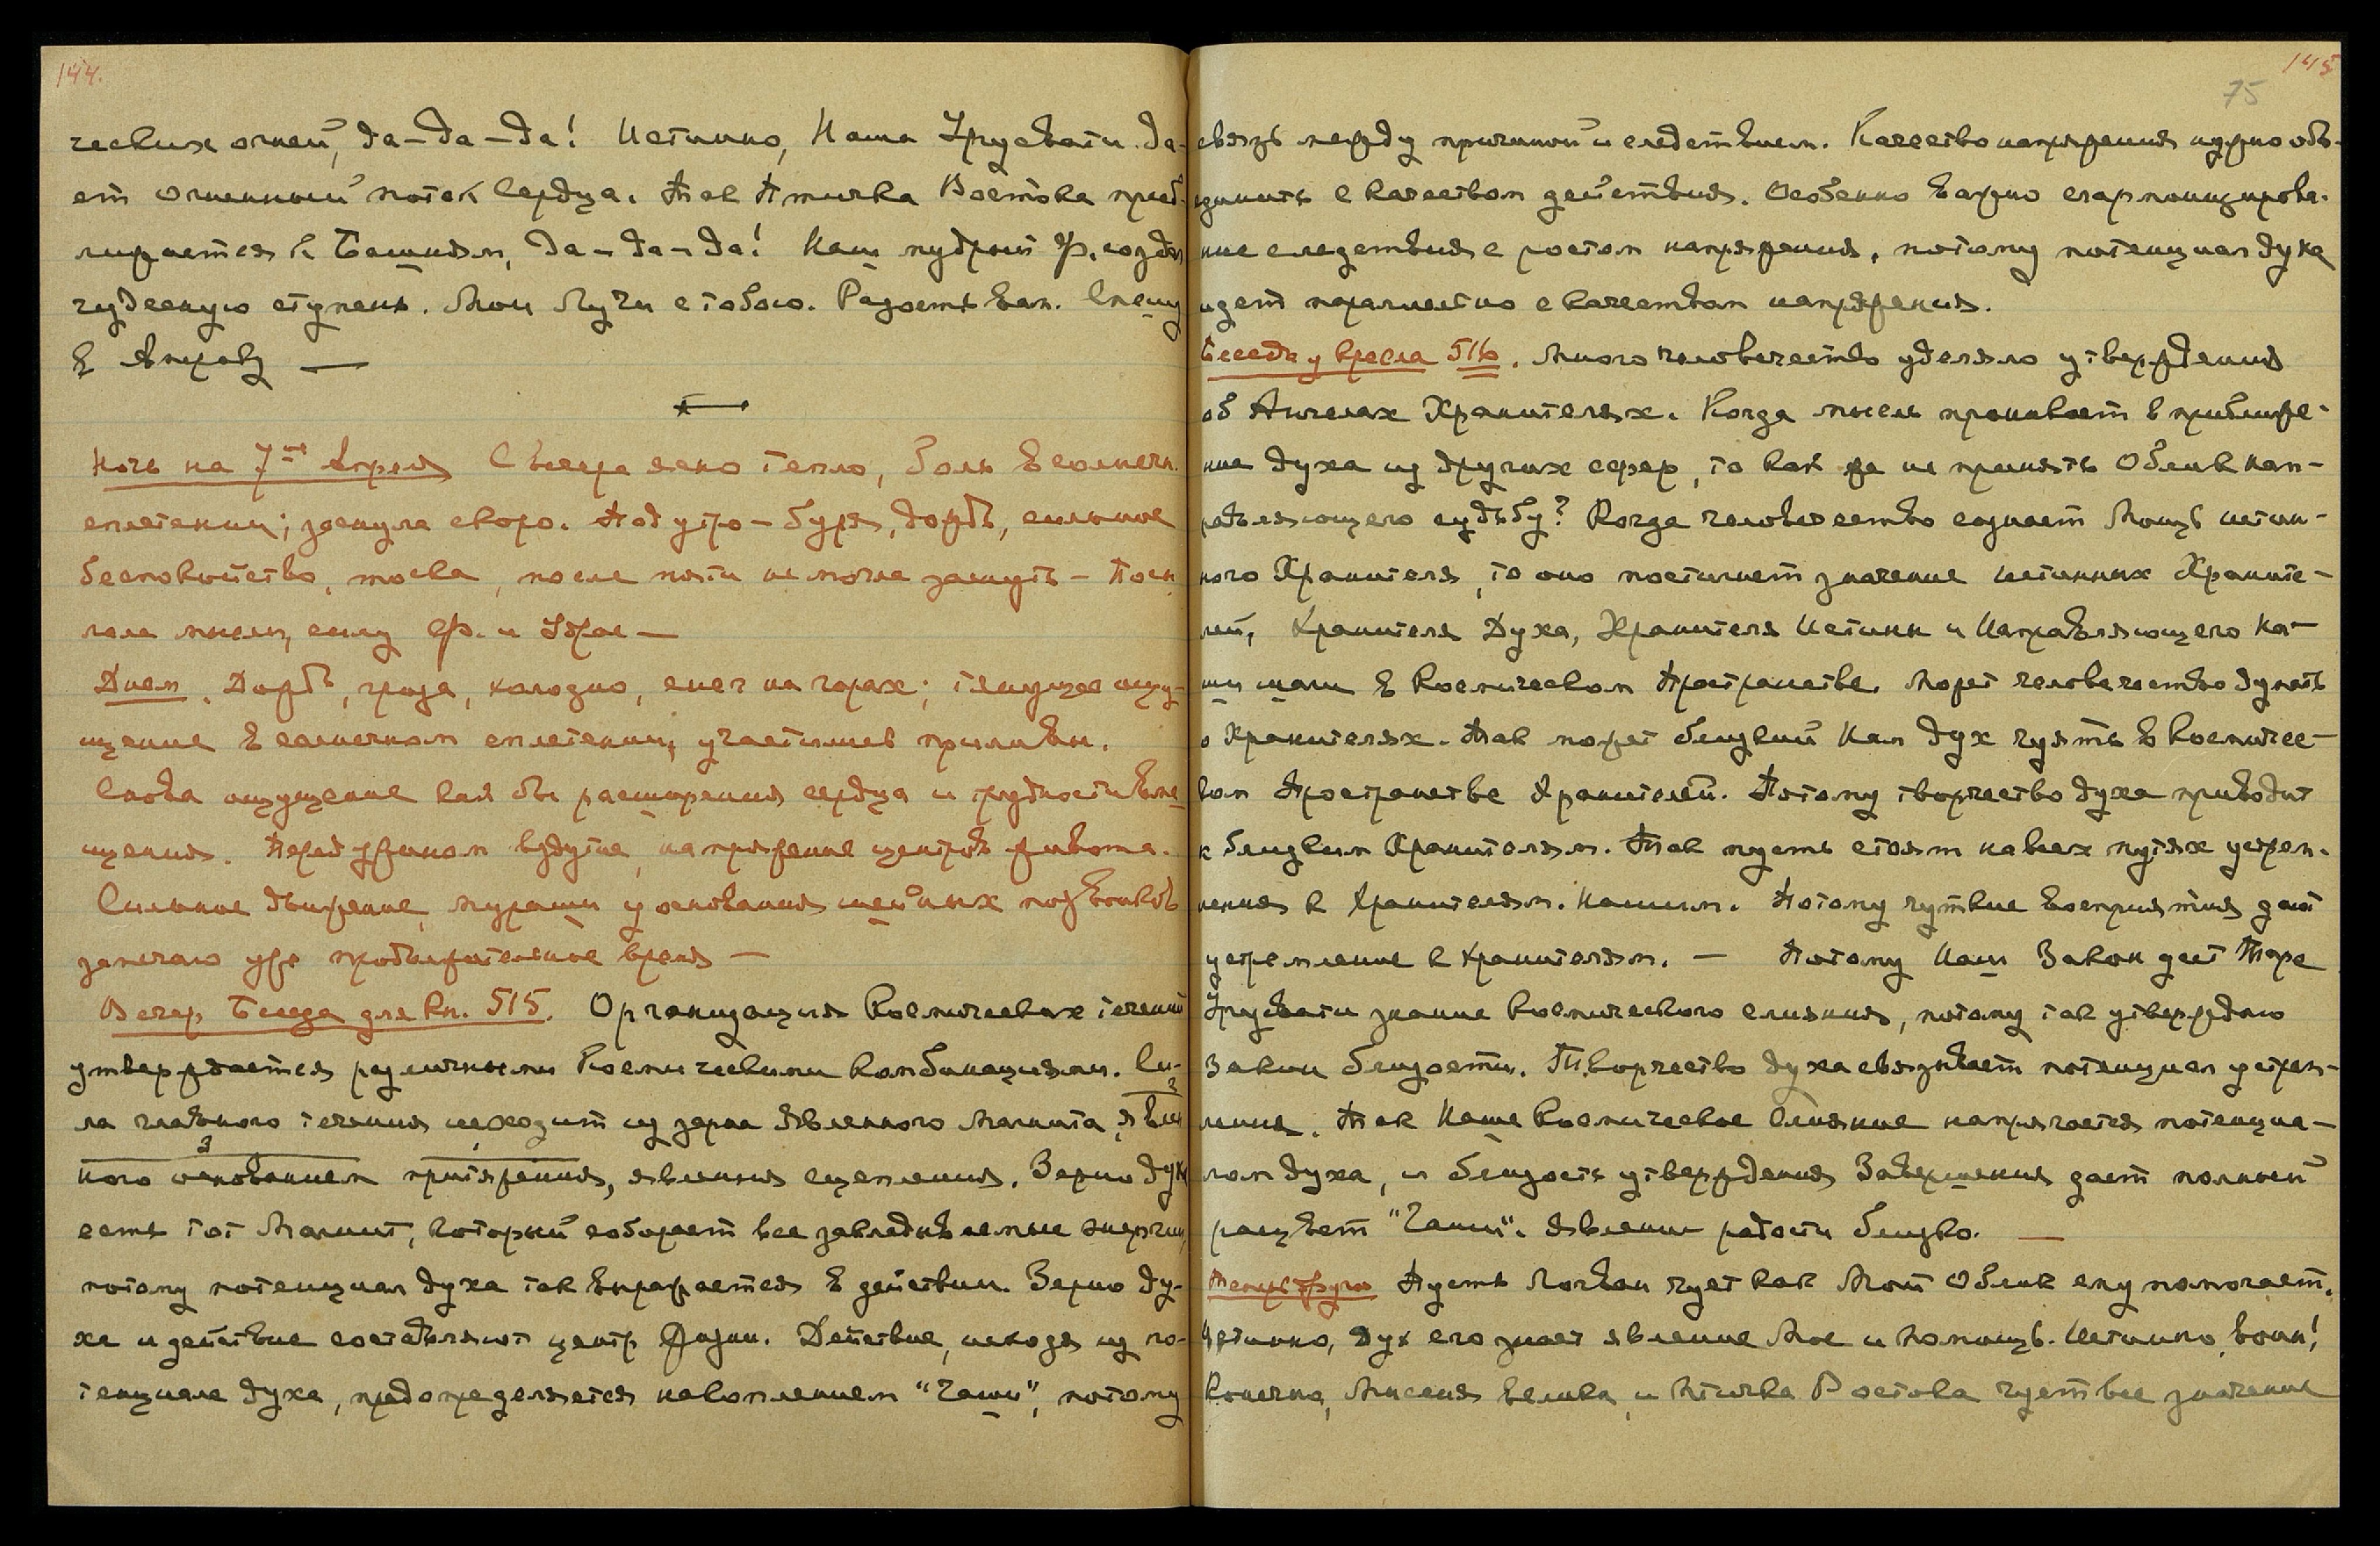 144.
ческих огней, да – да – да! Истинно, Наша Урусвати да-
ет огненный поток сердца. Так Птичка Востока приб-
лижается к Башням, да – да – да! Наш мудрый Ф. создал
чудесную ступень. Мои Лучи с тобою. Радость вам. Спешу
в —
Ночь на 7ое Апреля С вечера явно тепло, боль в солнечн.
сплетении; заснула скоро. Под утро – буря, дождь, сильное
беспокойство, тоска, после пяти не могла заснуть – Посы
лала мысли, силу Ф. и Удрае —
Днем. Дождь, гроза, холодно, снег на горах; тянущее ощу-
щение в солнечном сплетении, участились приливы.
Снова ощущение как бы расширения сердца и трудности вме
щения. Перед ужином вздутие, напряжение центров живота.
Сильное движение, мураши у основания шейных позвонков
замечаю уже продолжительное время —
Вечер Беседа для кн. 515. Организация Космических течений
утверждается различными Космическими комбинациями. Си-
ла главного течения исходит из зерна явленного Магнита, явлен
ного основанием притяжения, явления сцепления. Зерно духа
есть тот Магнит, который собирает все закладываемые энергии,
потому потенциал духа так выражается в действии. Зерно ду-
ха и действие составляют центр Жизни. Действие, исходя из по-
тенциала духа, предопределяется накоплением "Чаши", потому
145
75
связь между причиной и следствием. Качество напряжения нужно объ-
единить с качеством действия. Особенно важно сгармонизирова-
ние следствия с ростом напряжения, потому потенциал духа
идет параллельно с качеством напряжения.
Беседа у кресла 516. Много человечество уделяло утверждения
об Ангелах Хранителях. Когда мысль проникает в приближе-
ние духа из других сфер, то как же не принять Облик нап-
равляющего судьбу? Когда человечество сознает Мощь истин-
ного Хранителя, то оно постигнет значение истинных Храните-
лей, Хранителя Духа, Хранителя Истины и Направляющего на-
ши шаги в Космическом Пространстве. Может человечество думать
о Хранителях. Так может близкий Нам дух чуять в Космичес-
ком Пространстве Хранителей. Потому творчество духа приводит
к близким Хранителям. Так пусть стоят на всех путях устрем-
ления к Хранителям. Нашим. Потому чуткие восприятия дают
устремление к Хранителям. — Потому Наш Закон дает Таре
Урусвати знание Космического слияния, потому так утверждаю
Закон близости. Творчество духа связывает потенциал устрем-
ления. Так Наше Космическое Слияние напрягается потенциа-
лом духа, и близость утверждения Завершения дает полный
расцвет "Чаши". Явление радости близко. —
Пусть Логван чует как Мой Облик ему помогает.
Истинно, дух его знает явление Мое и Помощь. Истинно, воин!
Конечно, Миссия велика, и Птичка Востока чует все значение